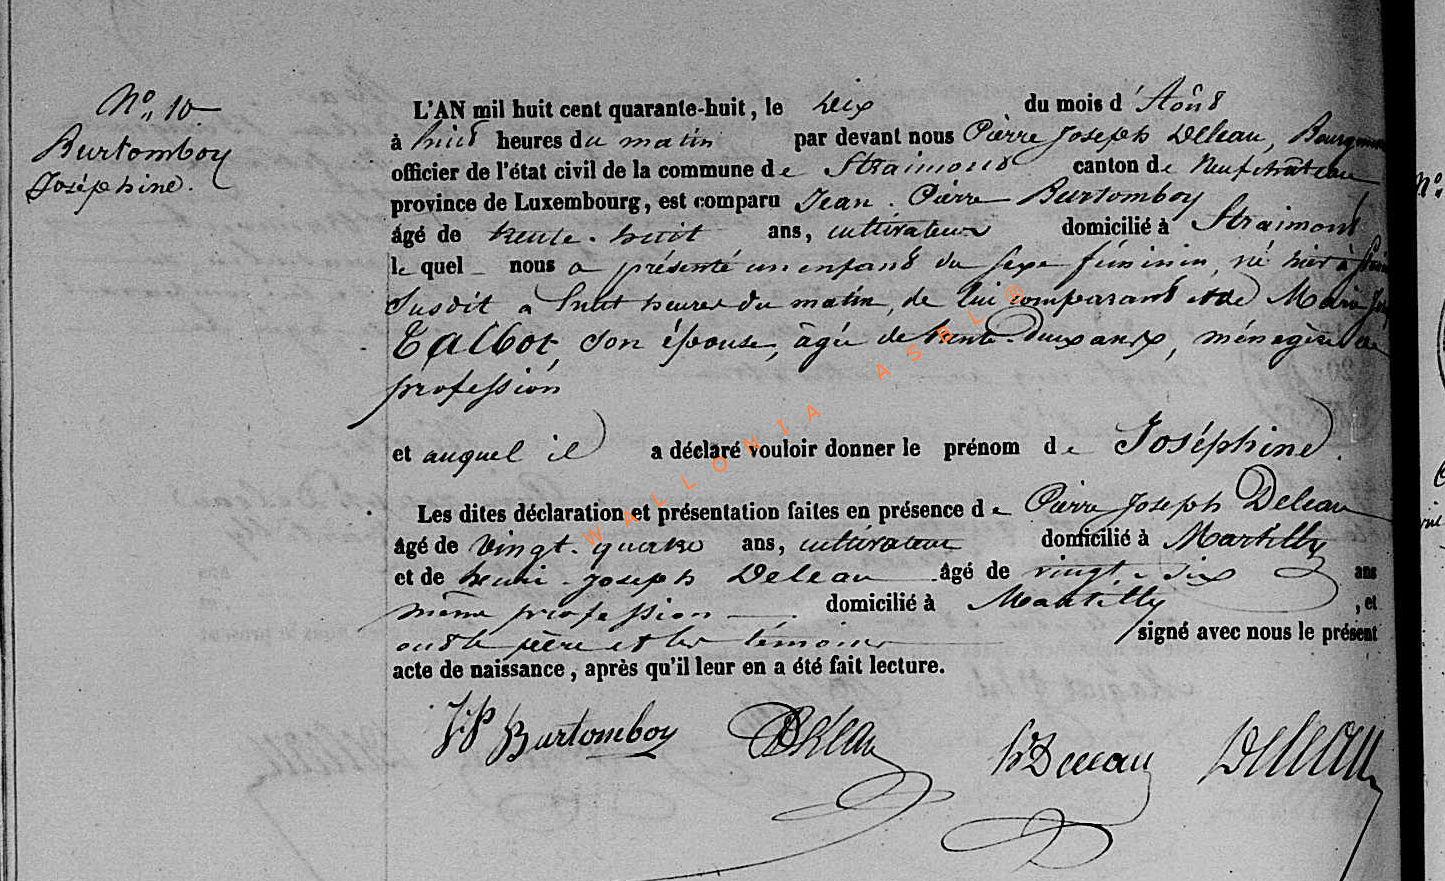 N° 10
Burtomboy
Joséphine.
L'AN mil huit cent quarante-huit, le dix du mois d'Août
à huit heures du matin par devant nous Pierre Joseph Deleau,
officier de l'état civil de la commune de Straimont canton de Neufchâteau
province de Luxembourg, est comparu Jean Pierre Burtomboy
âgé de trente-huit ans, cultivateur domicilié à Straimont
le quel nous a présenté un enfant du sexe féminin, né hier à
susdit à huit heures du matin, de lui comparant et de Marie
Talbot, son épouse, âgée de trente-deux ans, ménagère de
profession
et auquel il a déclaré vouloir donner le prénom de Joséphine.
Les dites déclaration et présentation faites en présence de Pierre Joseph Deleau
âgé de vingt-quatre ans, cultivateur domicilié à Martilly
et de henri-joseph Deleau âgé de vingt-six ans
même profession domicilié à Martilly, et
ont le père et les témoins signé avec nous le présent
acte de naissance, après qu'il leur en a été fait lecture.
JP Burtomboy Deleau h Deleau Deleau
WALLONIA ASBL ®
N°